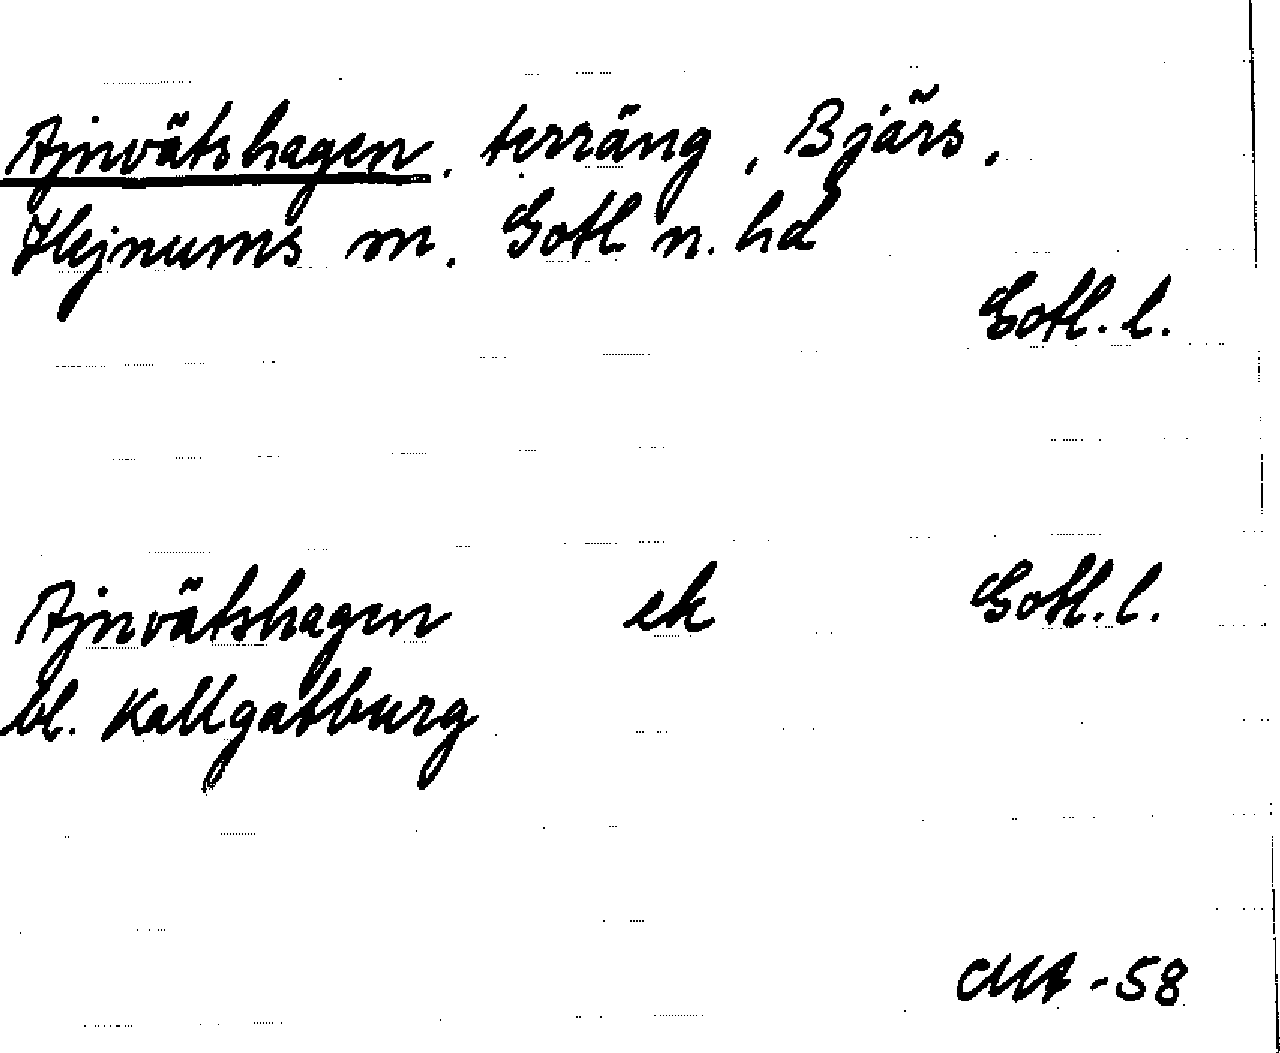 Ajnvätshagen, terräng, Bjärs,
Hejnums sn. Gotl n. hd
Gotl. l.
Ajnvätshagen ek Gotl. l.
bl. Kallgatburg
-58